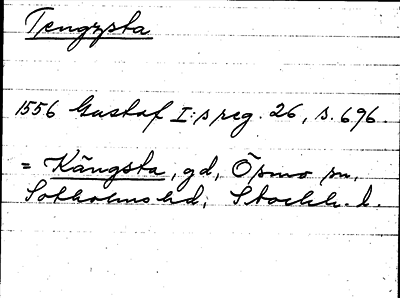 Tengzsta
1556 Gustaf I:s reg. 26, s. 696.
= Kängsta, gd, Ösmo sn,
Sotholms hd, Stockh. l.